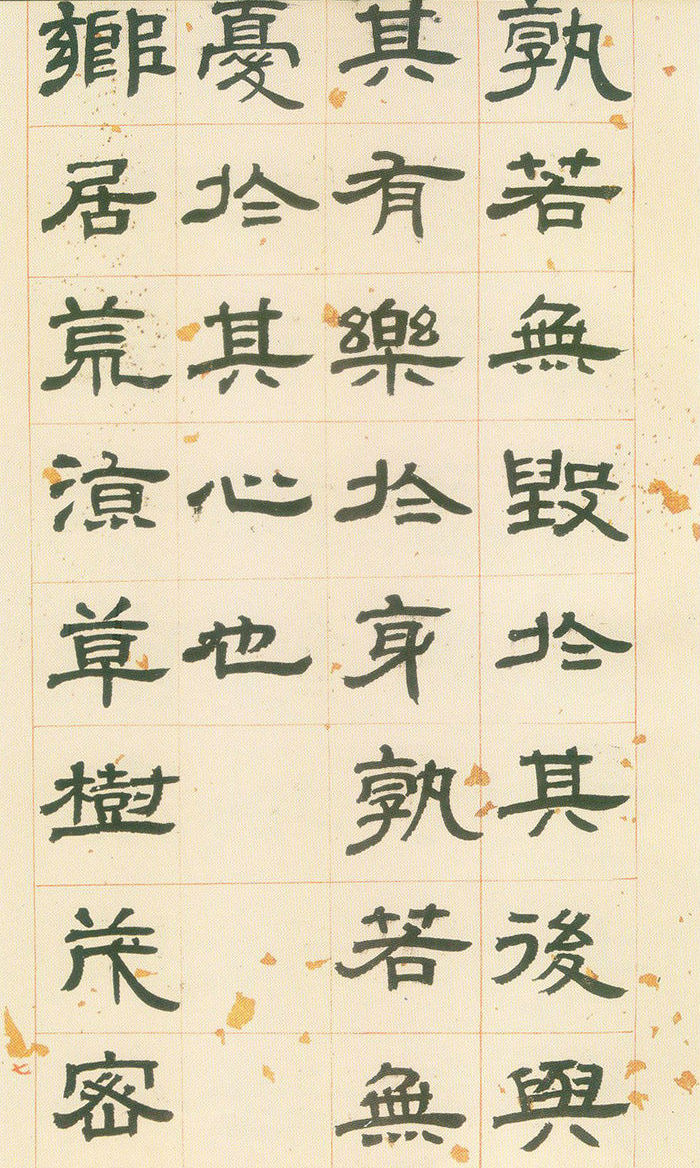 孰若無毀於其後與
其有樂於身孰若無
憂於其心也
鄉居荒涼草樹茂密